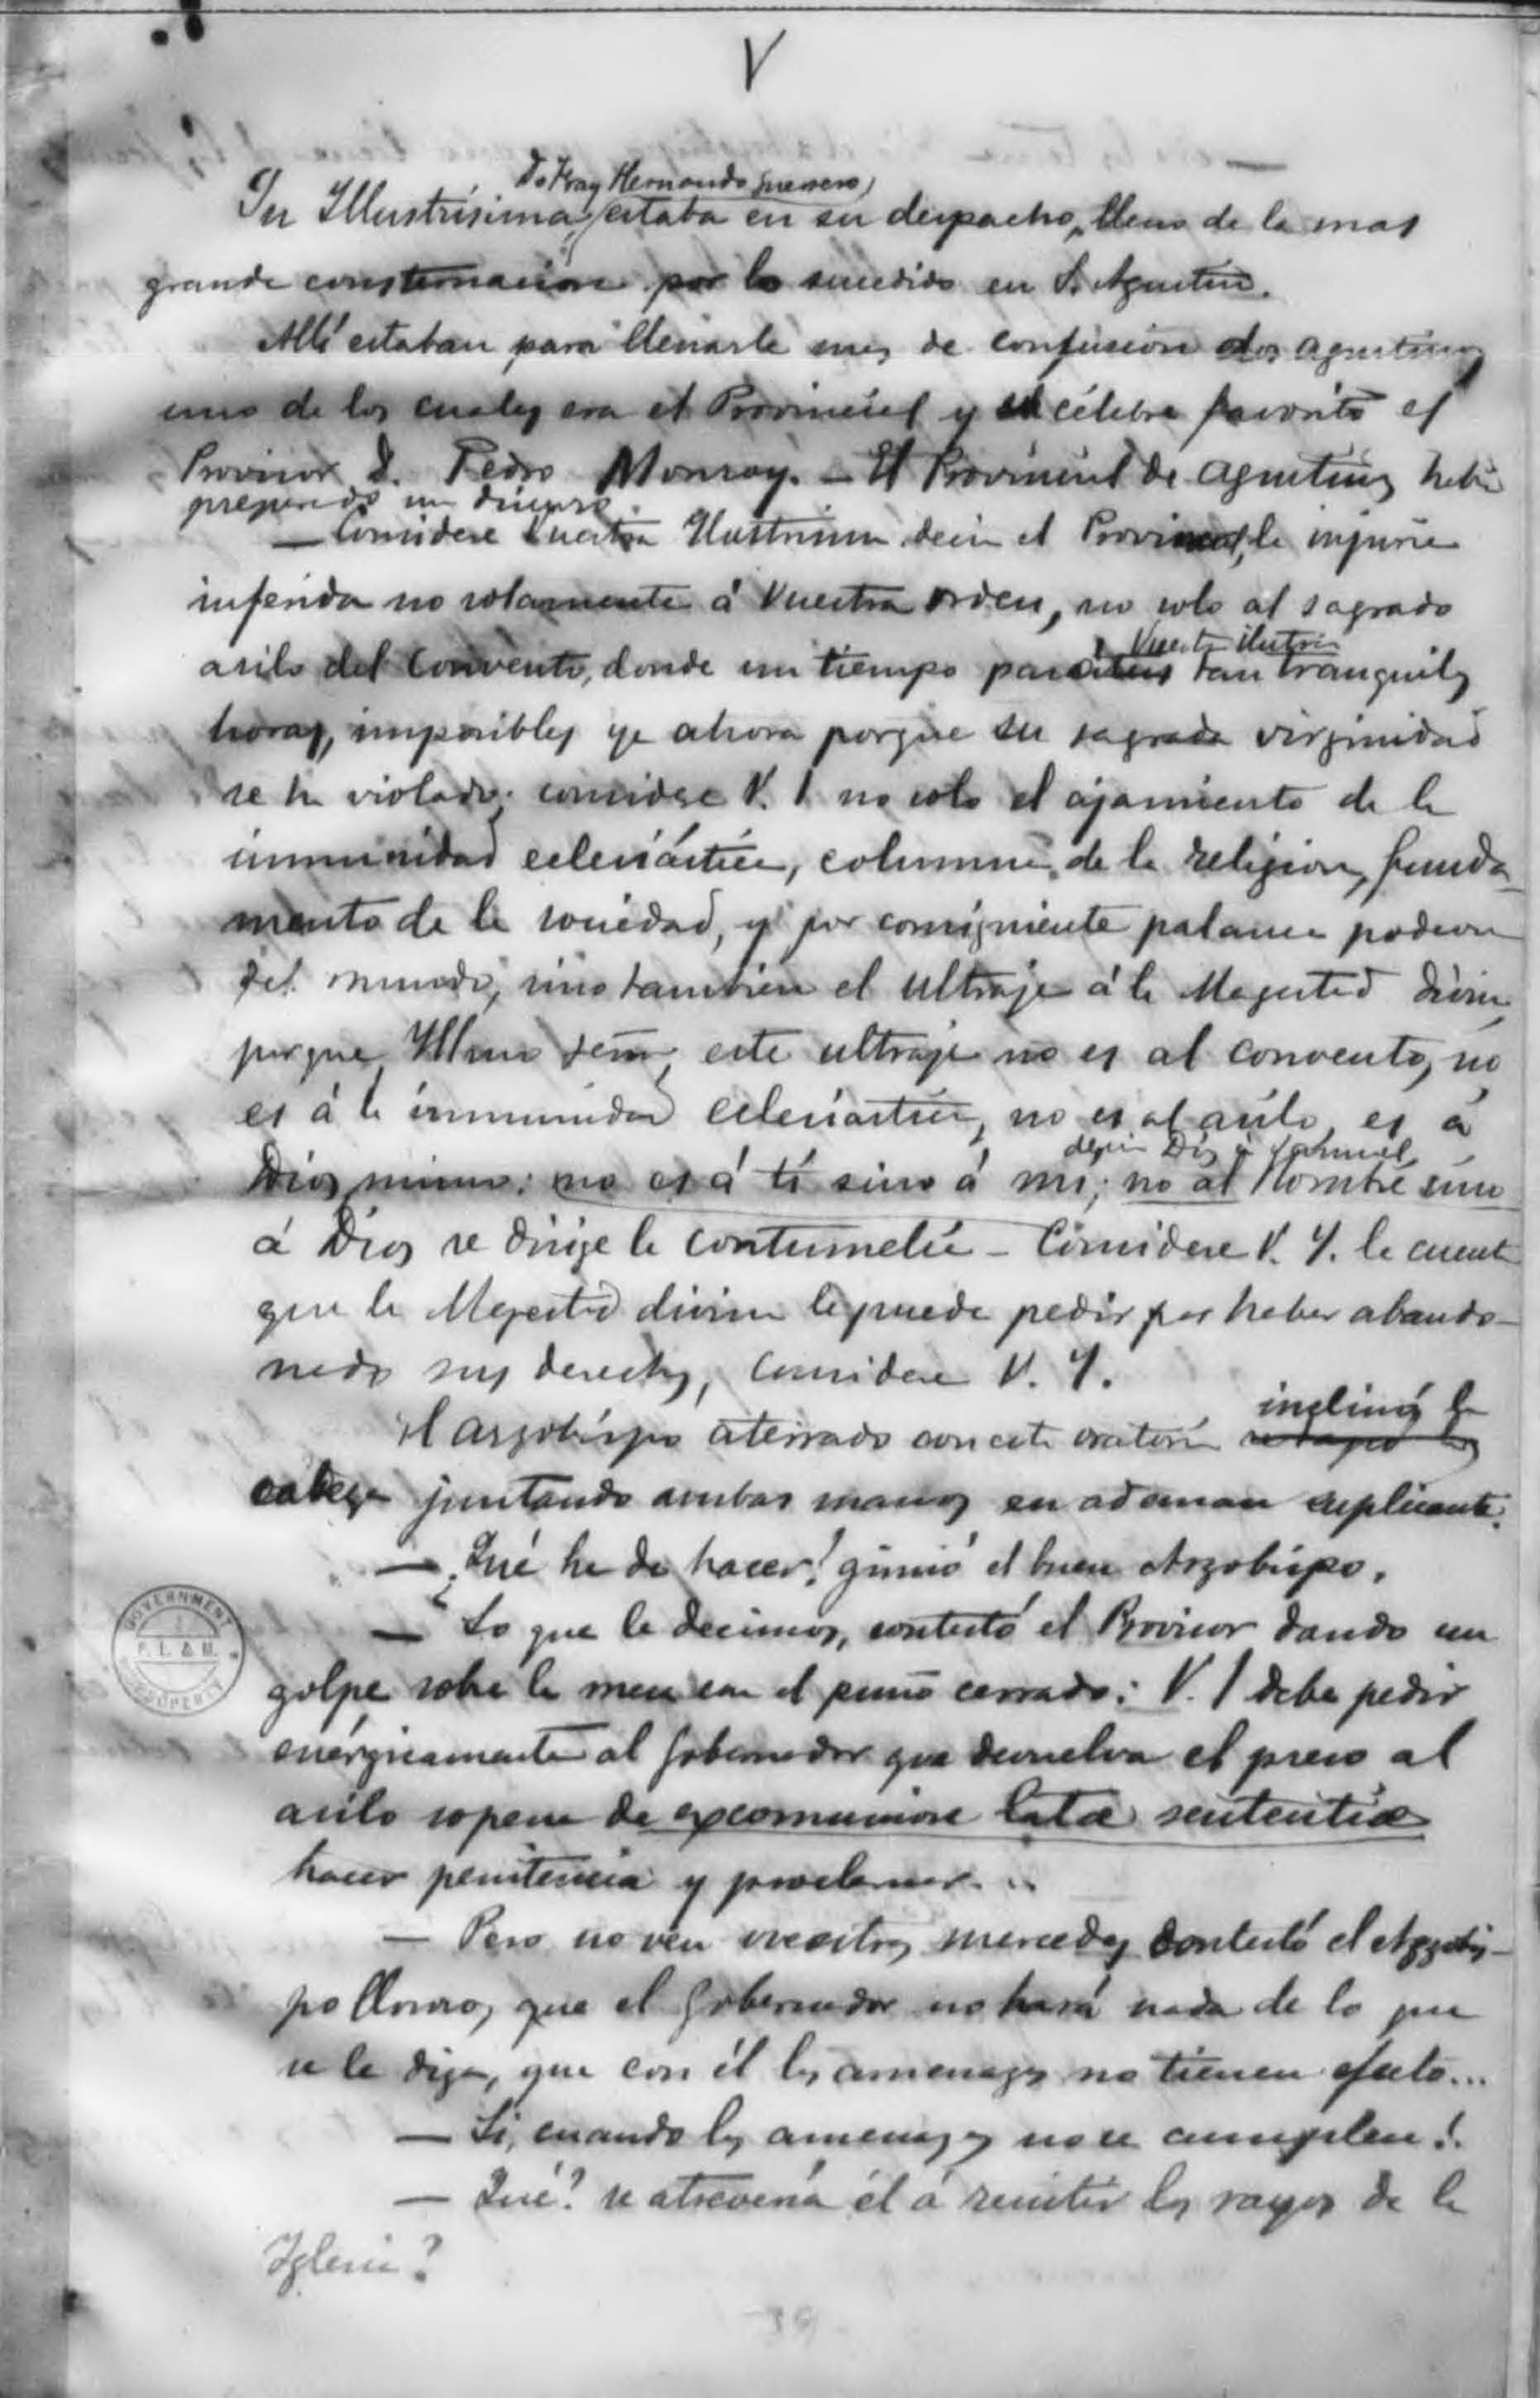 V
D. Fray Hernando Guerrero,
Su Illustrísima, estaba en su despacho, lleno de la mas
grande consternacion por lo sucedido en S. Agustin.
Allí estaban para llenarle mas de confusion dos agustinos
uno de los cuales era el Provincial y el célebre favorito el
Provisor D. Pedro Monroy. — El Provincial de Agustinos habia
preparado un discurso
— Considere Vuestra Illustrisima decia el Provincial, la injuria
inferida no solamente á Vuestra orden, no solo al sagrado
Vuestra Ilustris.
asilo del Convento, donde un tiempo tan tranquilas
horas, imposibles ya ahora porque su sagrada virginidad
se ha violado; considere V. I. no solo el ajamiento de la
inmunidad eclesiástica, columna de la religion, funda-
mento de la sociedad, y por consiguiente palanca poderosa
del mundo, sino tambien el ultraje á la Magestad divina
porque Illmo Señor, este ultraje no es al convento, no
es á la inmunidad eclesiastica, no es al asilo, es á
decia Dios á Samuel,
Dios mismo: no es á tí sino á mi; no al Hombre sino
á Dios se dirige la contumelia — Considere V. Y. la cuenta
que la Magestad divina le puede pedir por haber abando-
nado sus derechos, considere V. Y.
inclinó la
El arzobispo aterrado con esta oratoria se tapó los
cabeza juntando ambas manos en ademan suplicante.
— ¿Qué he de hacer! gimió el buen Arzobispo.
— Lo que le decimos, contestó el Provisor dando un
golpe sobre la mesa con el puño cerrado: V. I debe pedir
enérgicamente al Gobernador que devuelva el preso al
asilo sopena de excomunion latæ sententiæ
hacer penitencia y proclamar...
— Pero no ven vuestras mercedes contestó el Arzobis-
po lloroso, que el Gobernador no hará nada de lo que
se le diga, que con él las amenazas no tienen efecto...
— Si, cuando las amenazas no se cumplen!.
— Qué? se atreveria él á resistir los rayos de la
Iglesia?
GOVERNMENT
P. L. & M.
PROPERTY
39